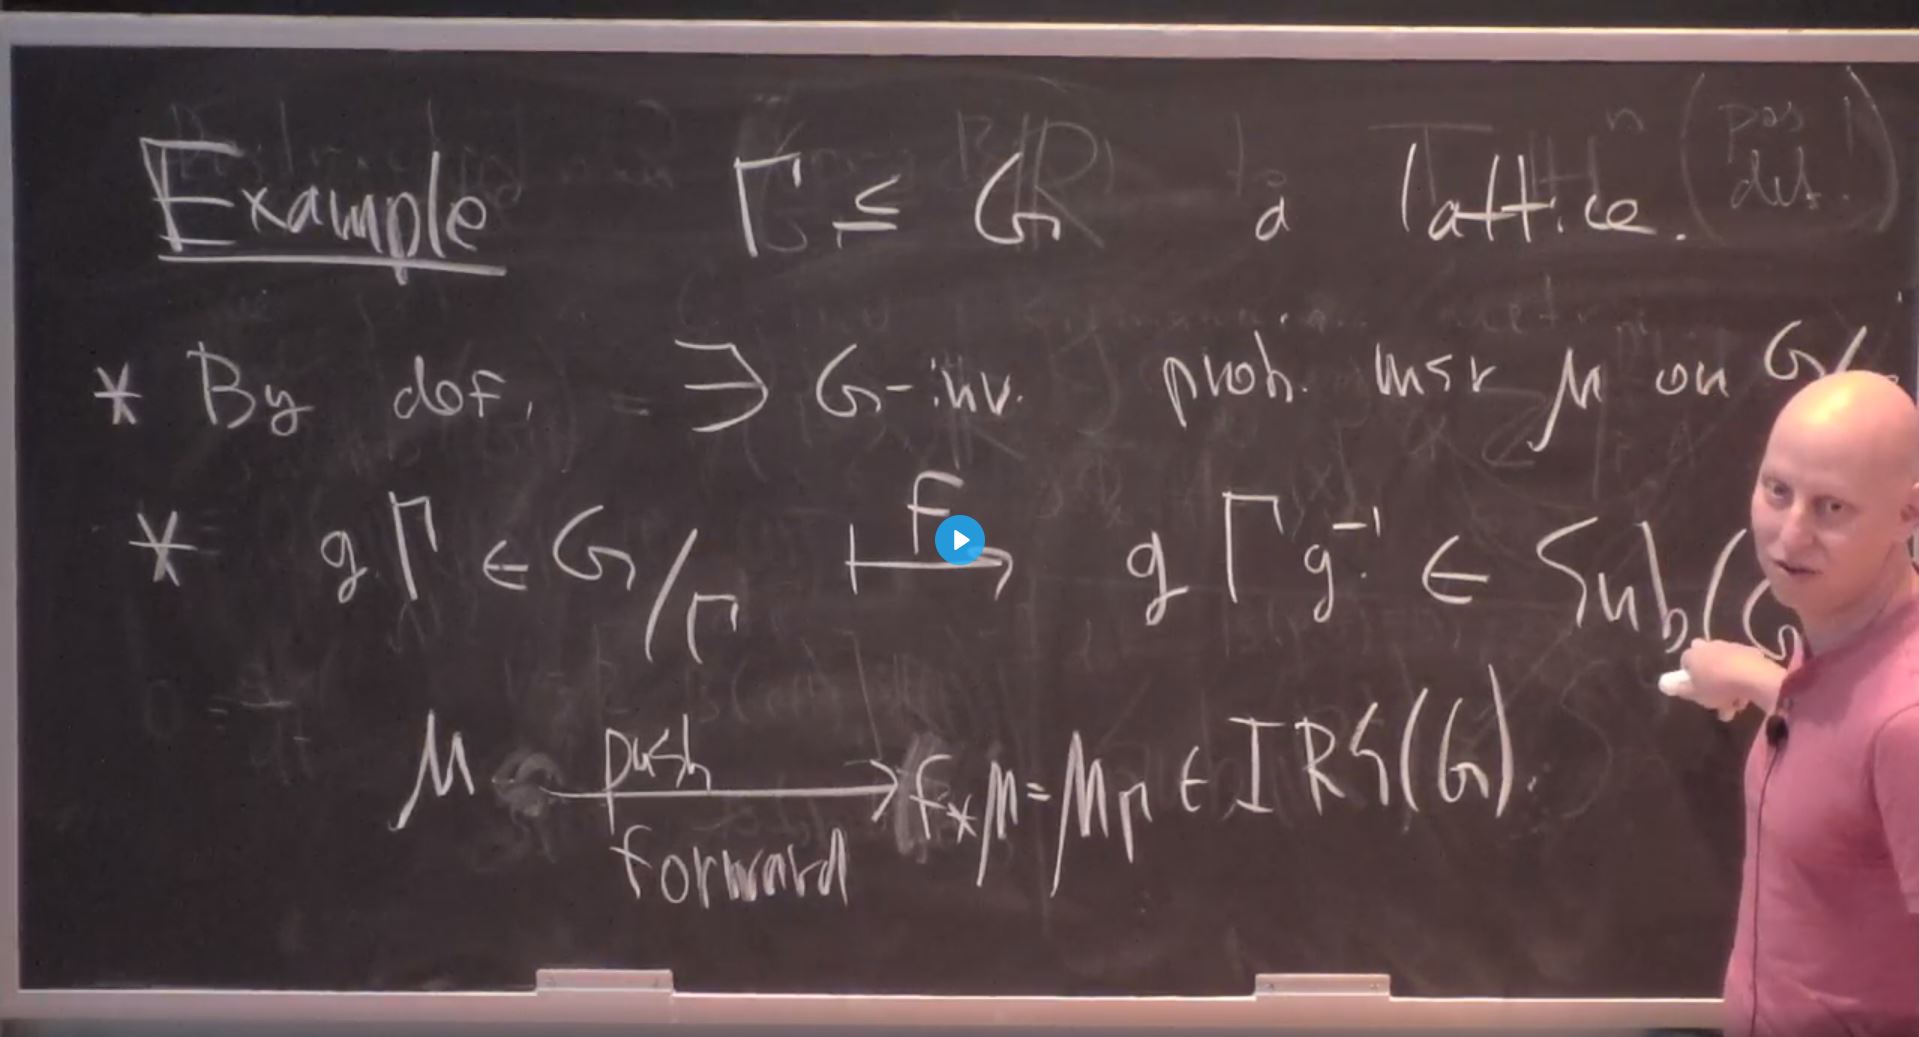 Example Γ ≤ G a lattice.
* By def. ∃ G-inv. prob. msr μ on G/
* gΓ ∈ G/Γ ⟼ f gΓg⁻¹ ∈ Sub(G
μ push forward → f_*μ = μ_Γ ∈ IRS(G).